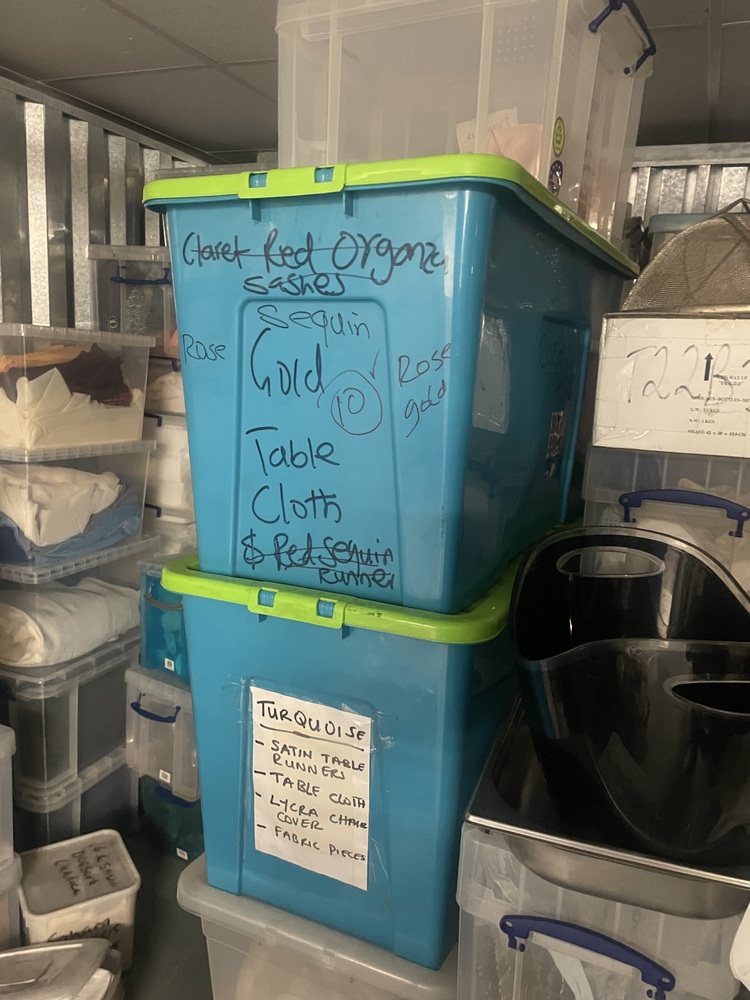 Claret Red Organza
sashes
Sequin
Rose
Gold
10
Rose
gold
Table
Cloth
$ Red Sequin
Runner
TURQUOISE
- SATIN TABLE
RUNNERS
- TABLE CLOTH
- LYCRA CHAIR
COVER
- FABRIC PIECES
T22B